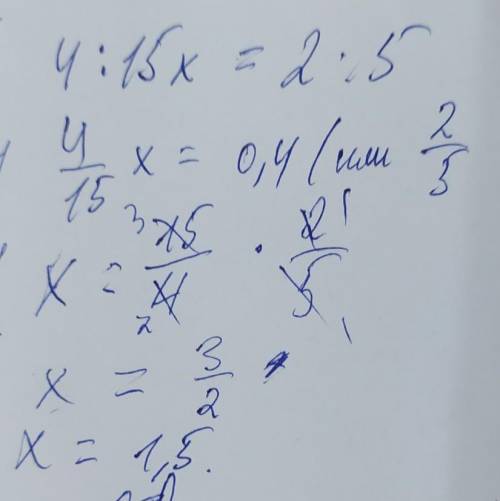 4 : 15x = 2 : 5
4/15 x = 0,4 (или 2/5
x = 15/4 · 2/5
x = 3/2
x = 1,5.